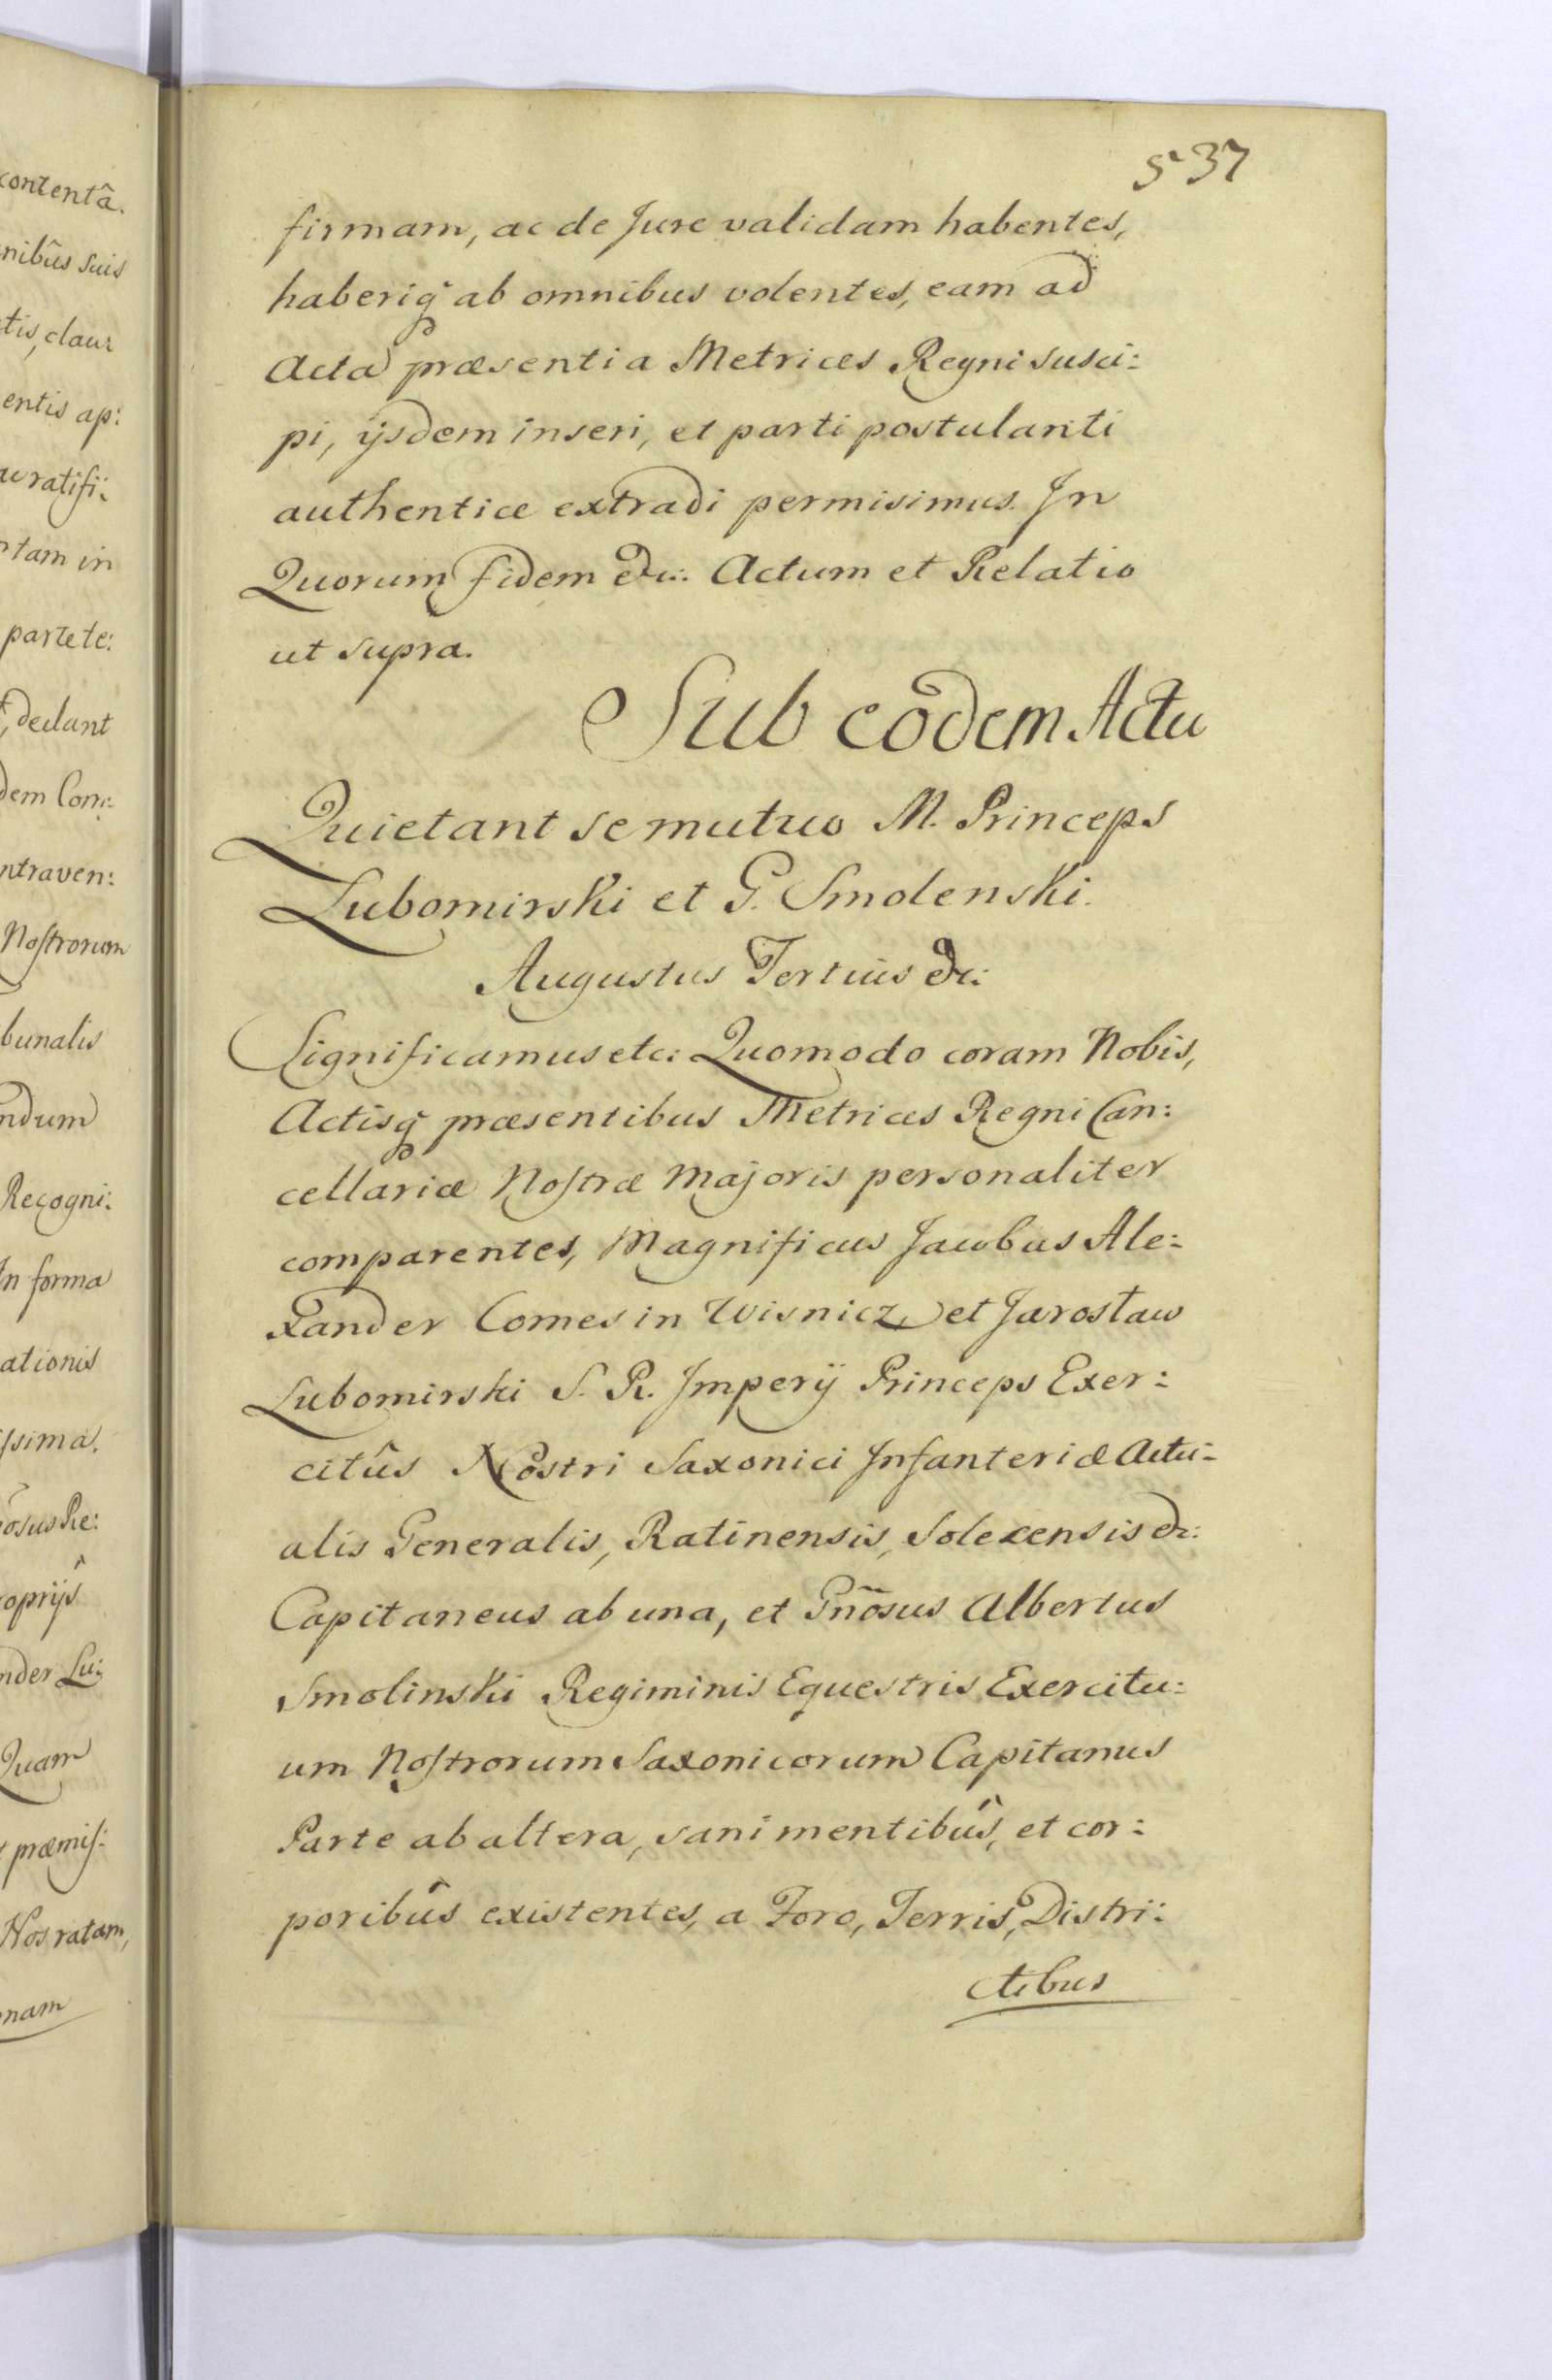 contentâ.
nibûs suis
tis, claur
entis ap:
ratifi:
tam in
parte te:
declant
dem Com:
ntraven:
Nostrorum
bunalis
ndum
Recogni:
In forma
ationis
ssima.
ôsus Re:
roprijs
nder Lu:
Quam
præmis:
Nos, ratam,
nam
537
firmam, ac de Jure validam habentes,
haberiq̃ ab omnibus volentes, eam ad
Acta præsentia Metrices Regni susci:
pi, ijsdem inseri, et parti postulanti
authentice extradi permisimus. In
Quorum fidem &c: Actum et Relatio
ut supra.
Sub eôdem Actu
Quietant se mutuo M. Princeps
Lubomirski et G. Smolenski.
Augustus Tertius &c:
Significamus etc: Quomodo coram Nobis,
Actisq̃ præsentibus Metrices Regni Can:
cellariæ Nostræ Majoris personaliter
comparentes, Magnificus Jacobus Ale:
xander Comes in Wisnicz, et Jarosław
Lubomirski S. R. Imperij Princeps Exer:
citûs Nostri Saxonici Infanteriæ Actu-
alis Generalis, Ratinensis, Solecensis &c:
Capitaneus ab una, et Gñosus Albertus
Smolinski Regiminis Equestris Exercitu:
um Nostrorum Saxonicorum Capitanus
Parte ab altera, sani mentibûs, et cor:
poribûs existentes, a Foro, Terris, Distri:
ctibus